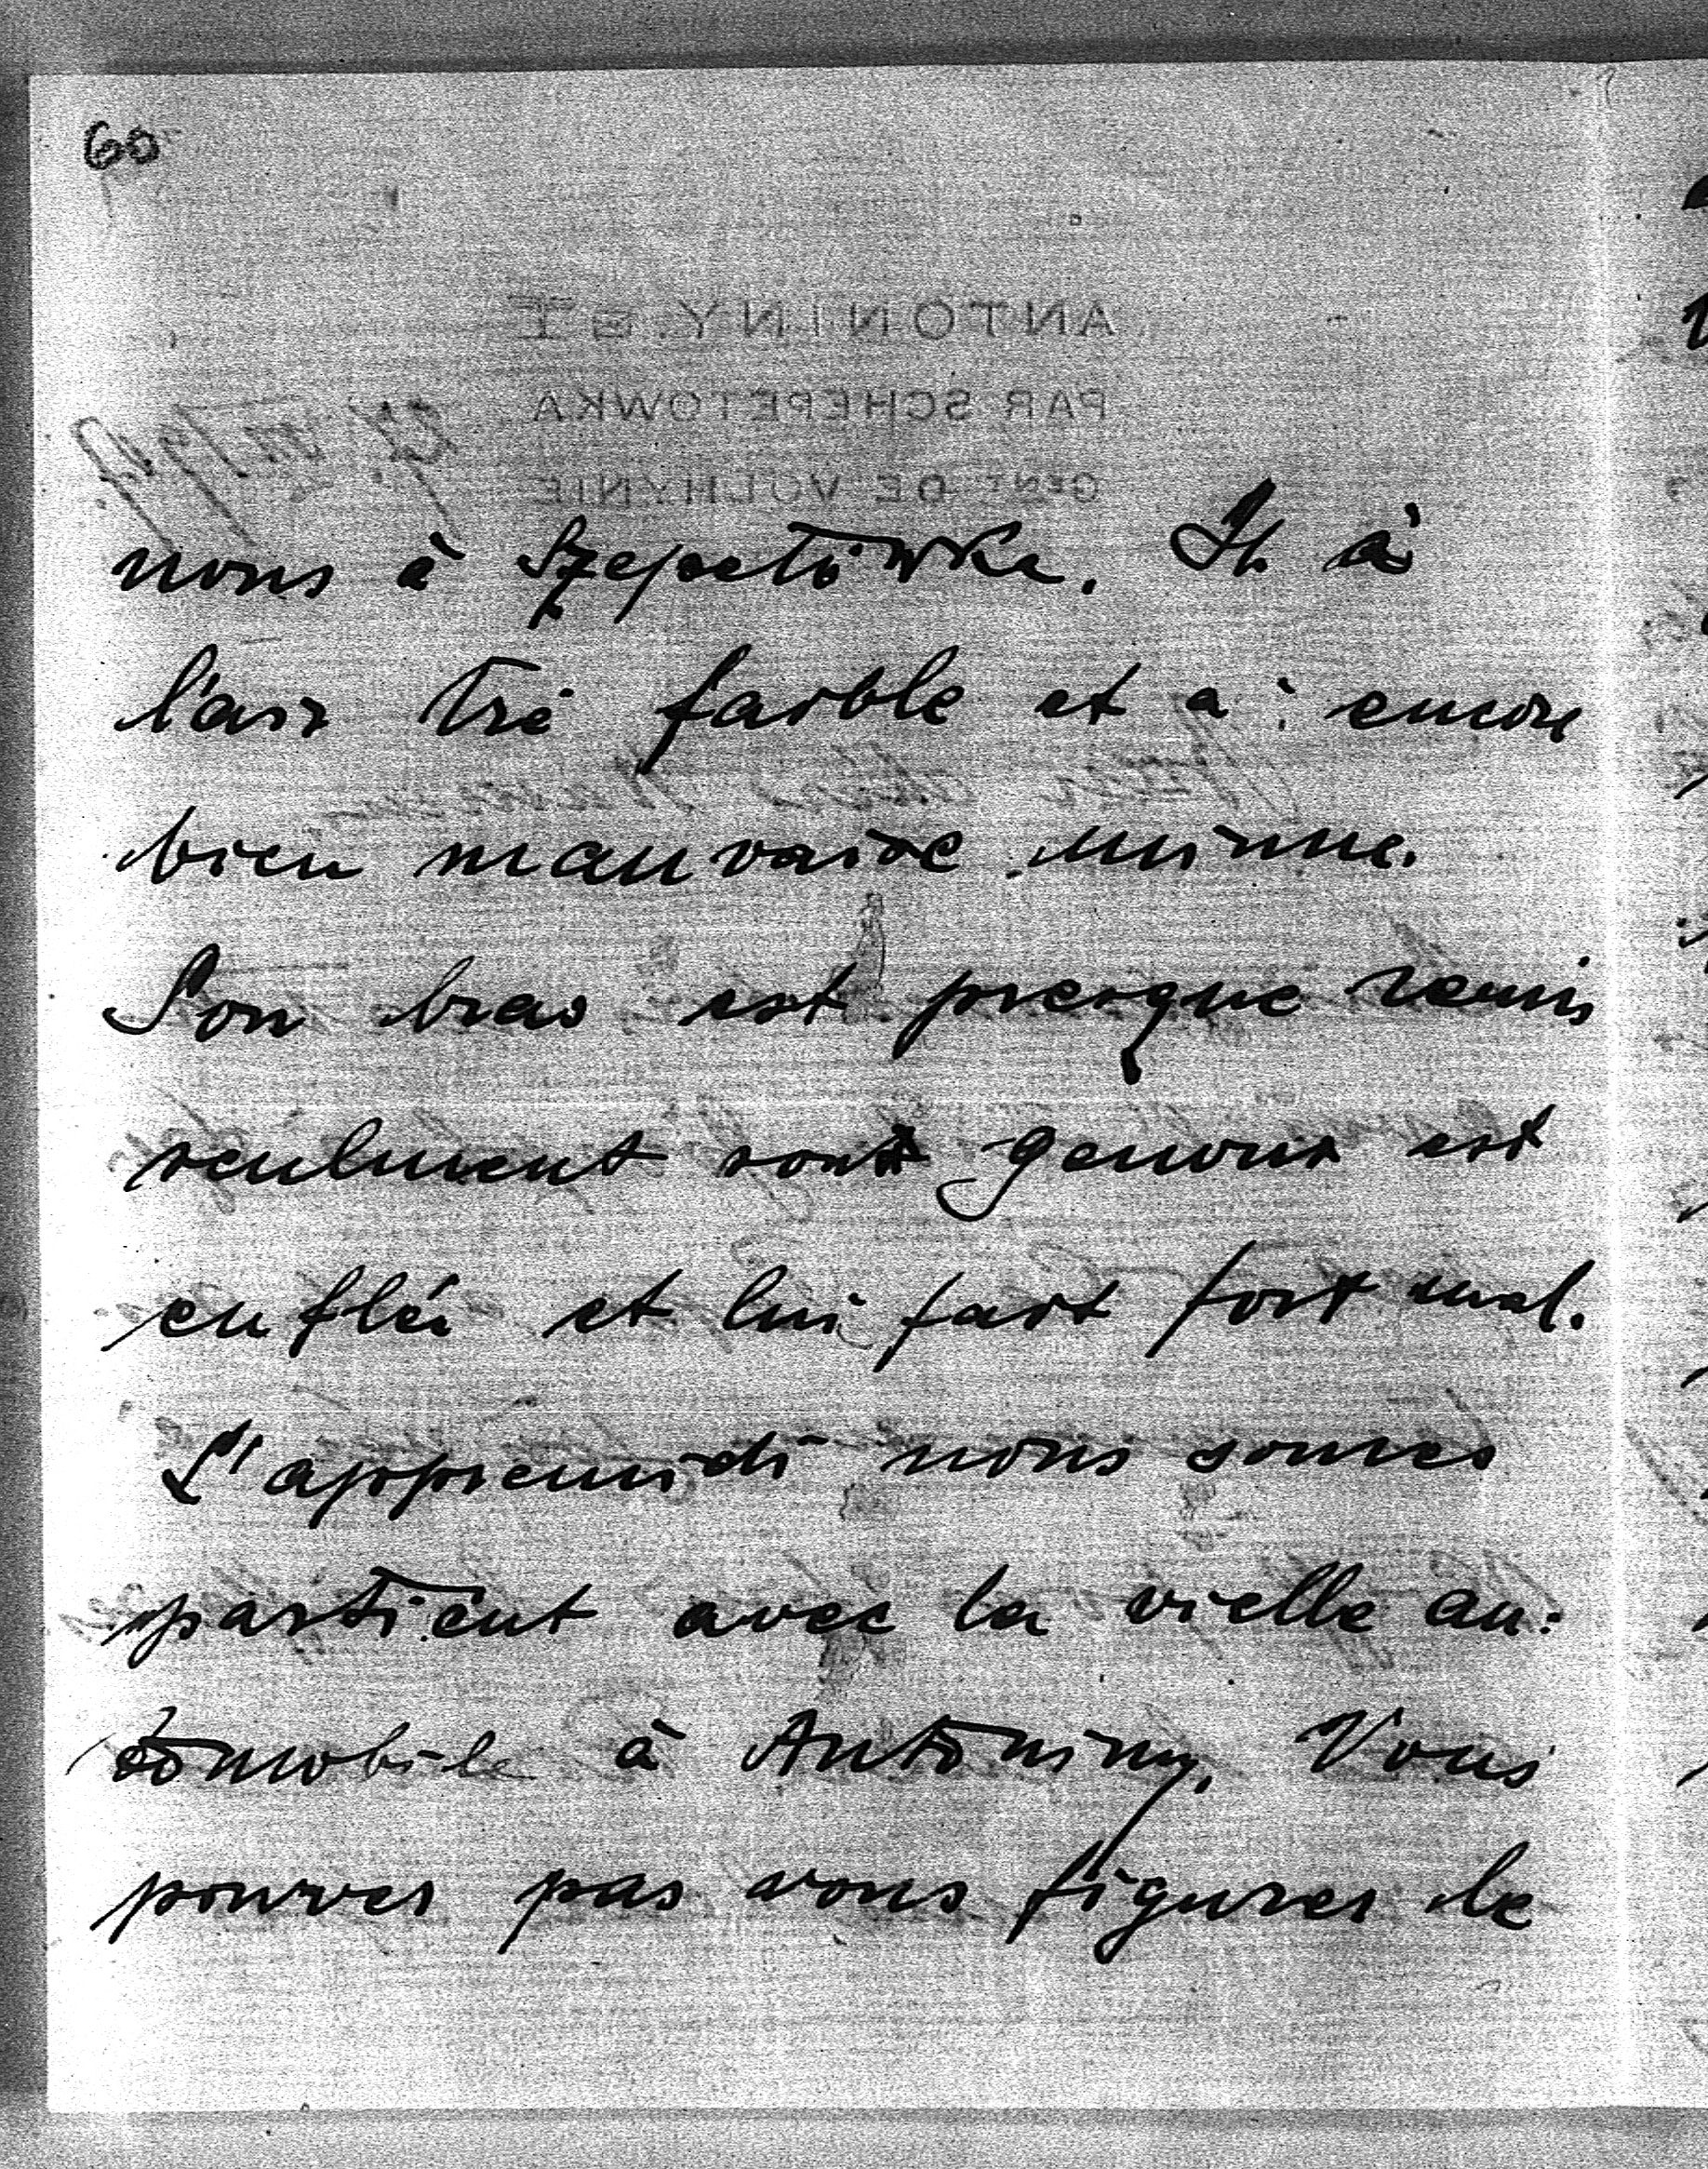 60
ANTONINY
PAR SCHEPETOWKA
GENT DE VOLHYNIE
nous à Szepetówka. Il à
l'air tré faible et a: encore
bien mauvaise minne.
Son bras est presque remis
seulment sont genoux est
enflé et lui fait fort mal.
L'appremidi nous somes
partient avec la vielle au:
tomobile à Antoniny. Vous
pouver pas vous figurer le